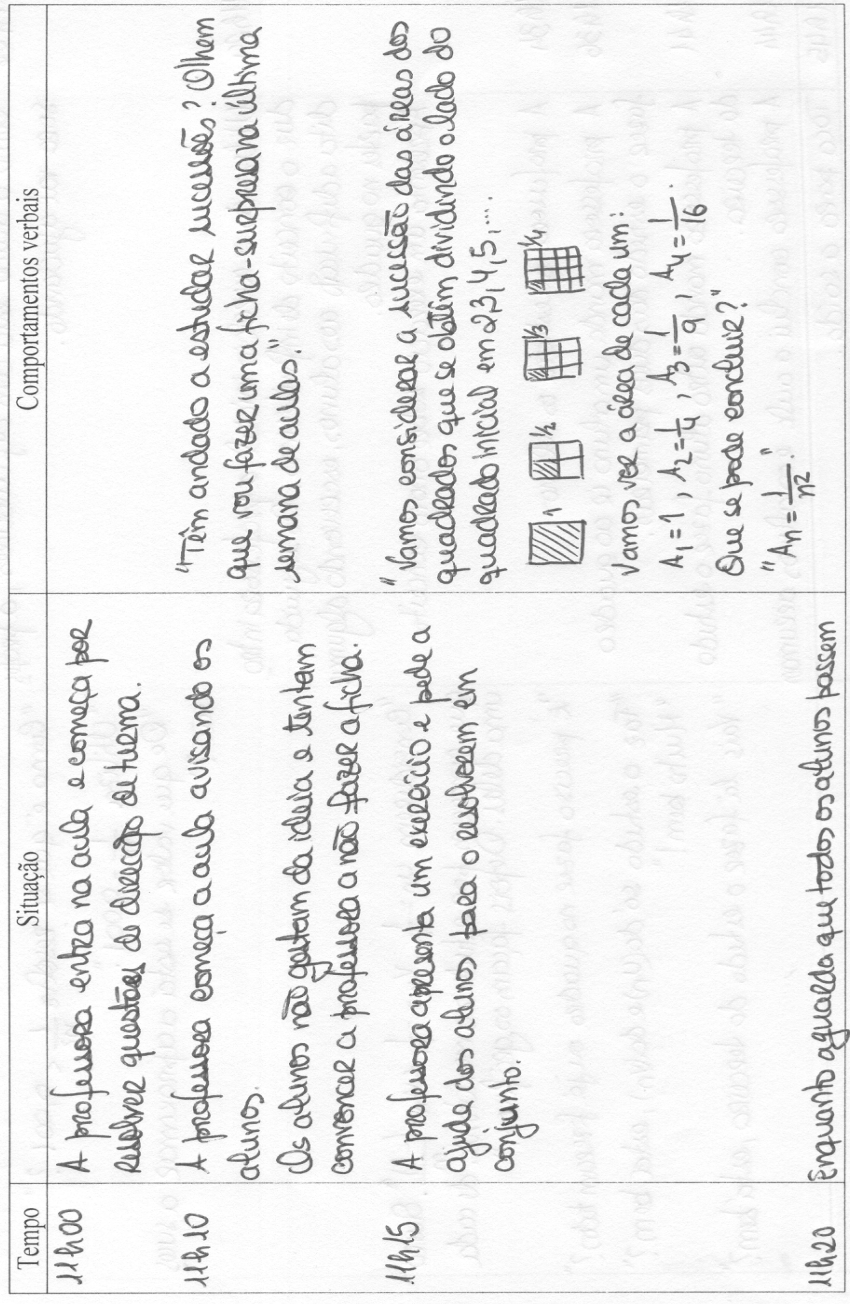 Tempo
Situação
Comportamentos verbais
11h00
A professora entra na aula e começa por
resolver questões de direcção de turma.
11h10
A professora começa a aula avisando os
alunos.
"Têm andado a estudar sucessões? Olhem
que vou fazer uma ficha-surpresa na última
semana de aulas."
Os alunos não gostam da ideia e tentam
convencer a professora a não fazer a ficha.
11h15
A professora apresenta um exercício e pede a
ajuda dos alunos para o resolverem em
conjunto.
"Vamos considerar a sucessão das áreas dos
quadrados que se obtêm dividindo o lado do
quadrado inicial em 2,3,4,5,....
1 1/2 1/3 1/4
Vamos ver a área de cada um:
A₁=1, A₂=1/4, A₃=1/9, A₄=1/16
Que se pode concluir?"
"An=1/n²."
11h20
Enquanto aguarda que todos os alunos passem